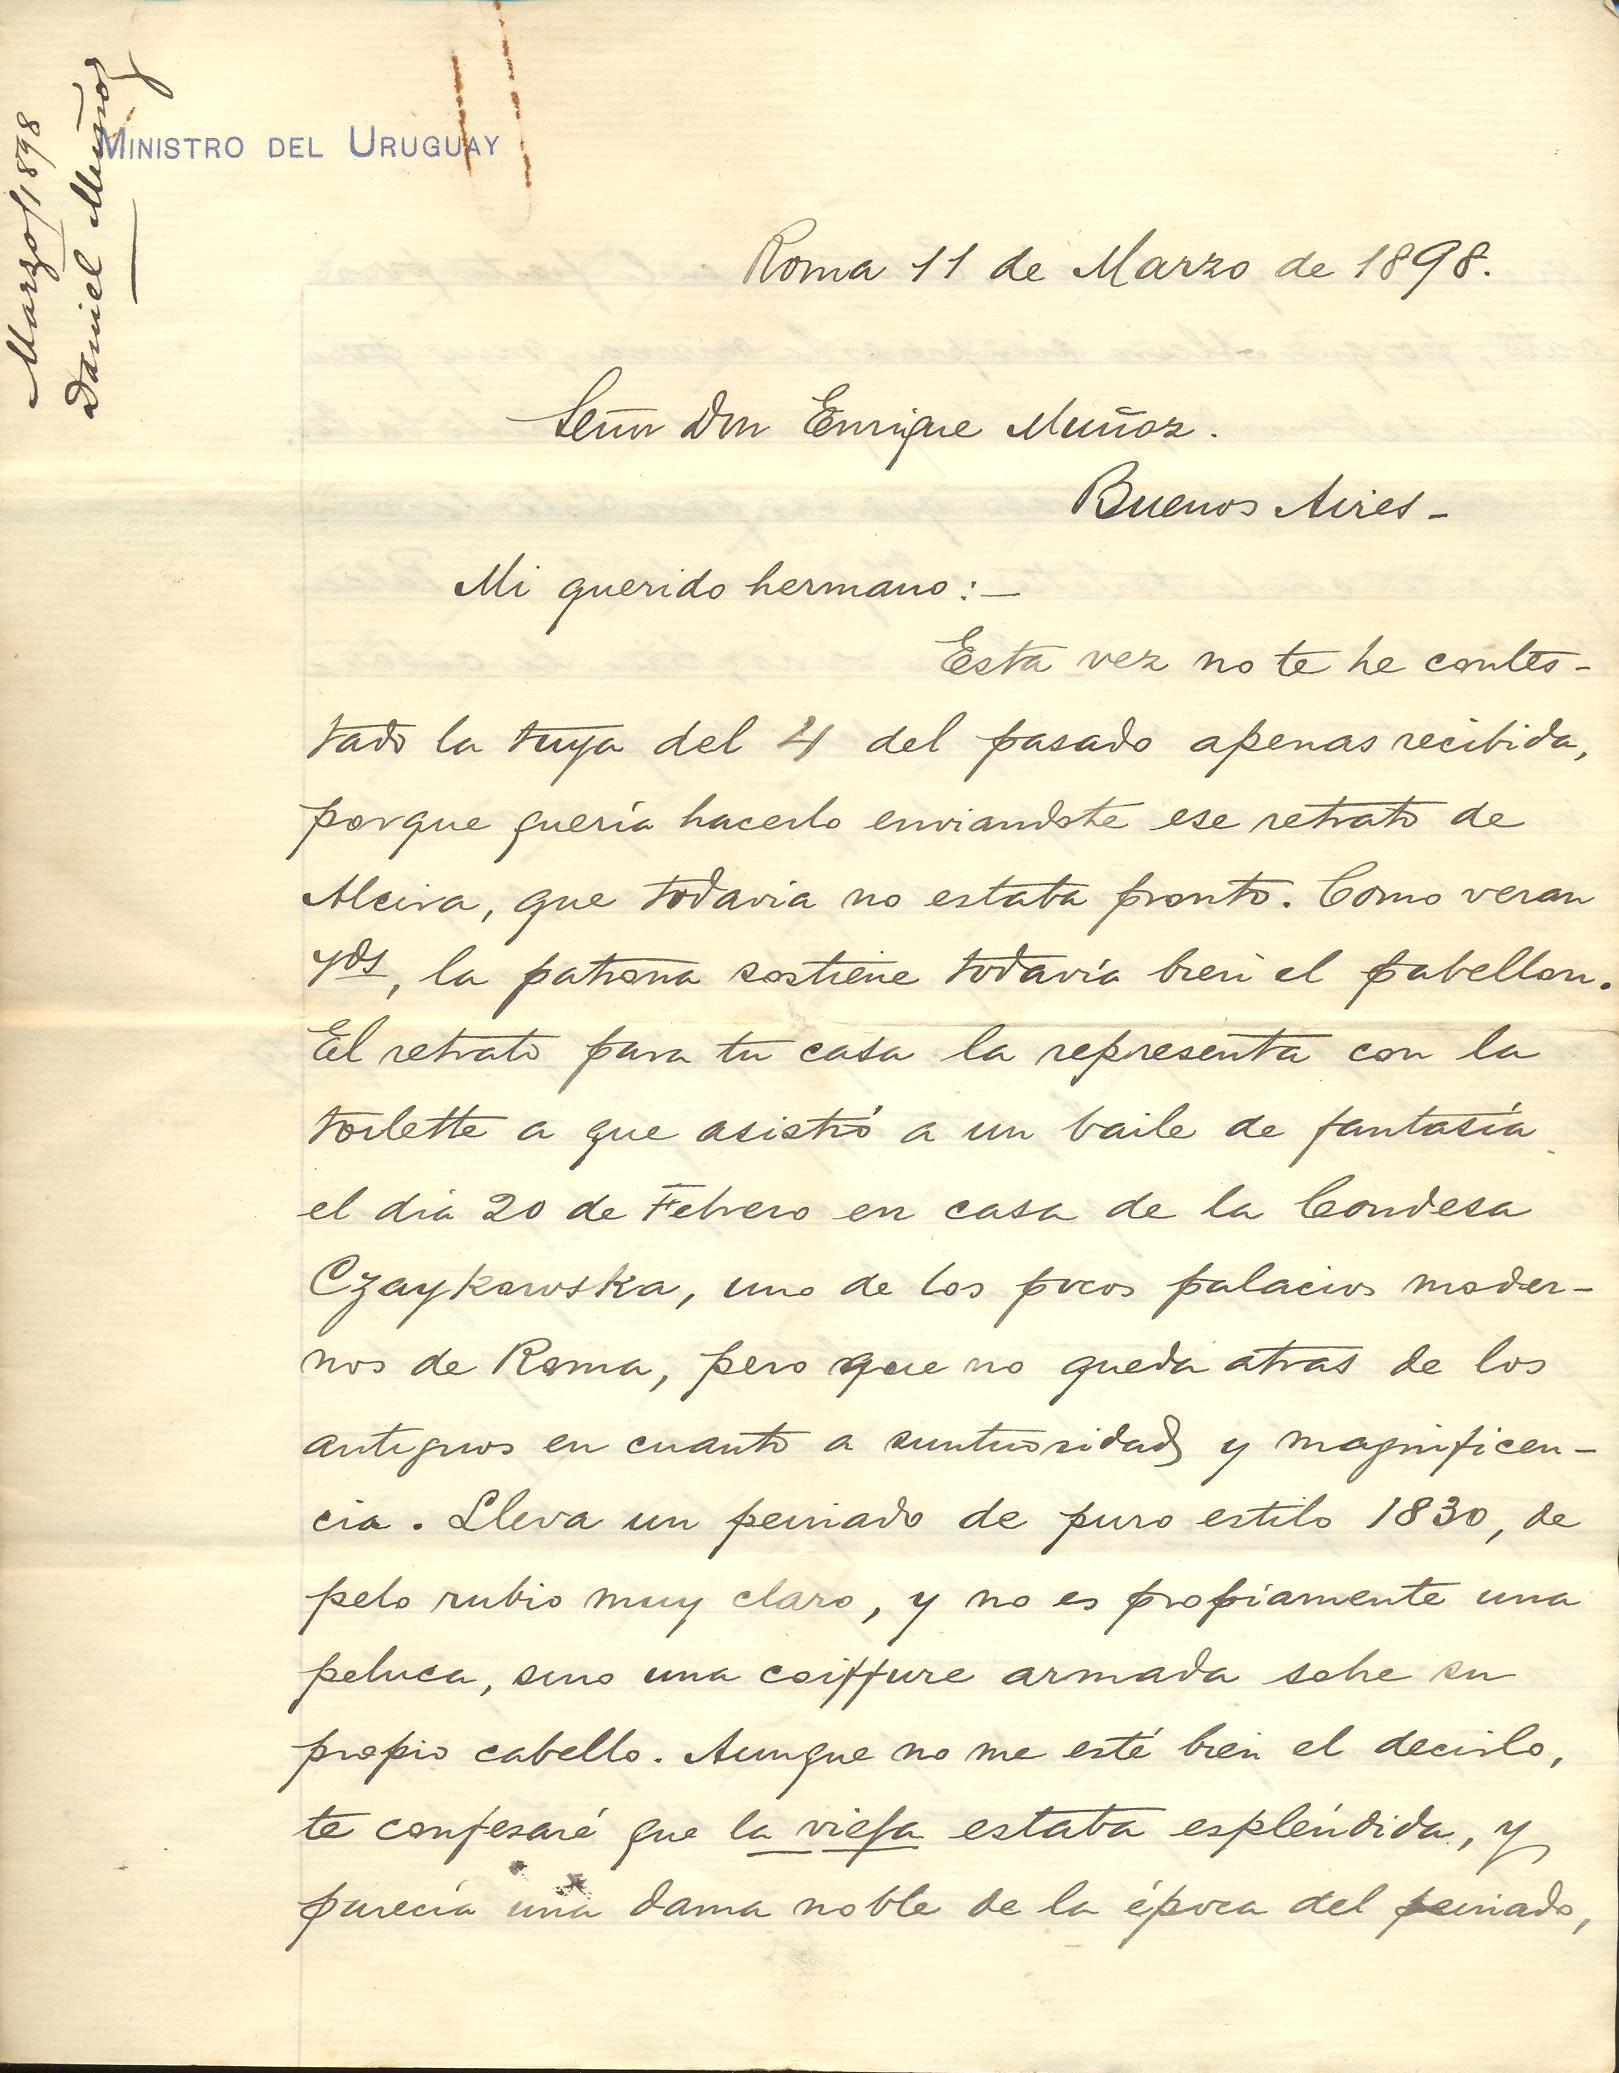 Marzo/1898
Daniel Muñoz
MINISTRO DEL URUGUAY
Roma 11 de Marzo de 1898.
Señor Don Enrique Muñoz.
Buenos Aires -
Mi querido hermano: -
Esta vez no te he contes-
tado la tuya del 4 del pasado apenas recibida,
porque quería hacerlo enviandote ese retrato de
Alcira, que todavia no estaba pronto. Como veran
Vds, la patrona sostiene todavía bien el pabellon.
El retrato para tu casa la representa con la
toilette a que asistió a un baile de fantasía
el dia 20 de Febrero en casa de la Condesa
Czaykowska, uno de los pocos palacios moder-
nos de Roma, pero que no queda atras de los
antiguos en cuanto a suntuosidad y magnificen-
cia. Lleva un peinado de puro estilo 1830, de
pelo rubio muy claro, y no es propiamente una
peluca, sino una coiffure armada sobre su
propio cabello. Aunque no me esté bien el decirlo,
te confesaré que la vieja estaba espléndida, y
parecía una dama noble de la época del peinado,